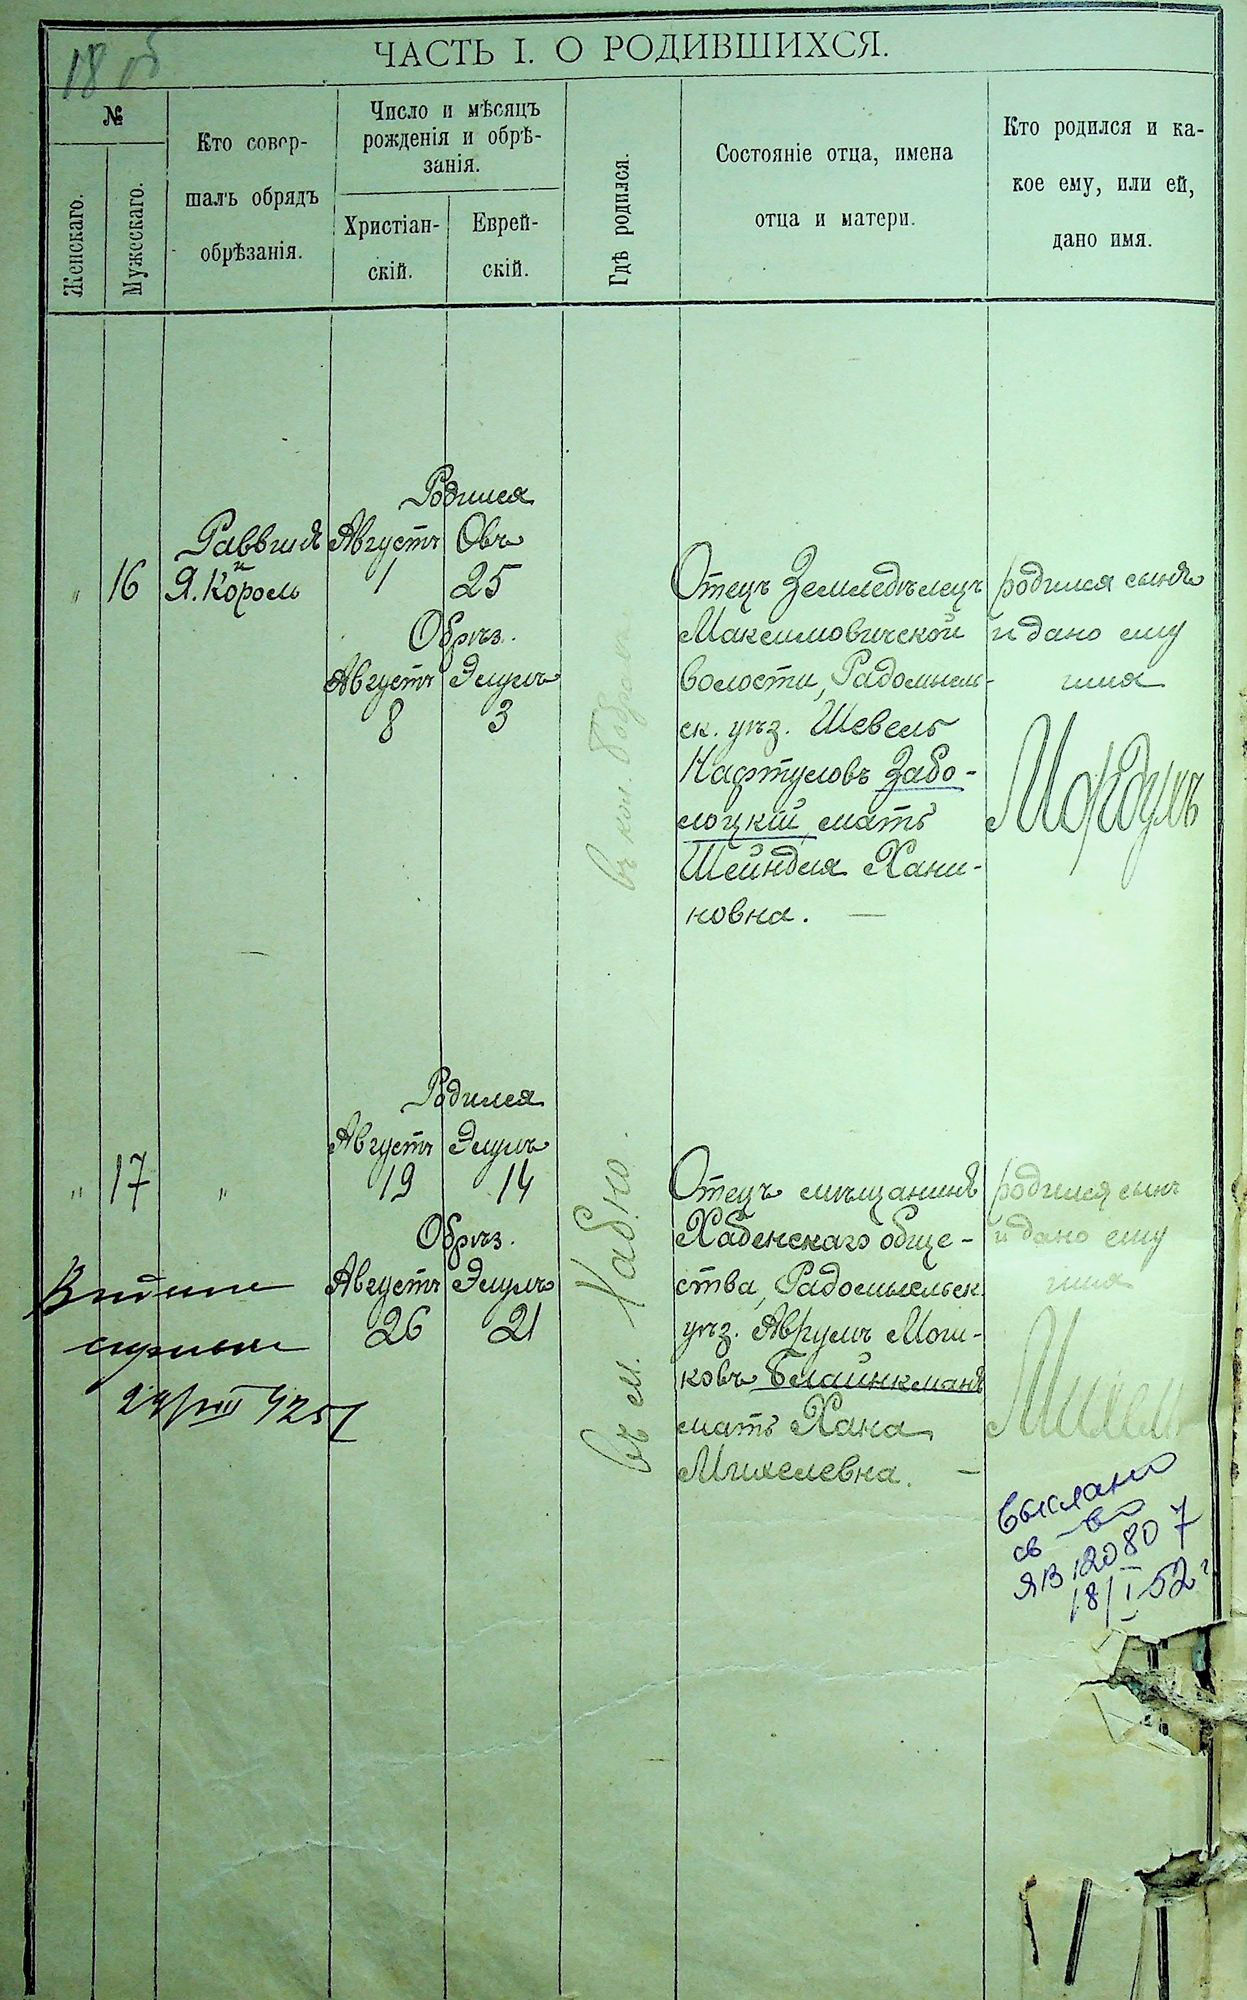 18 об
ЧАСТЬ I. О РОДИВШИХСЯ.
№
Женскаго.
Мужескаго.
Кто совер-
шалъ обрядъ
обрѣзанія.
Число и мѣсяцъ
рожденія и обрѣ-
занія.
Христіан-
скій.
Еврей-
скій.
Гдѣ родился.
Состояніе отца, имена
отца и матери.
Кто родился и ка-
кое ему, или ей,
дано имя.
" 16
Раввинъ
и
Я. Король
Родился
Августъ Овъ
1 25
Обрѣз.
Августъ Элулъ
8 3
въ кол.
Отецъ Земледѣлецъ
Максимовичской
волости, Радомысль-
ск. уѣз. Шевель
Нафтуловъ Забо-
лоцкій, мать
Шейндля Хани-
новна. —
родился сынъ
и дано ему
имя
Мордухъ
" 17 "
Родился
Августъ Элулъ
19 14
Обрѣз.
Августъ Элулъ
26 21
въ м. Хабно.
Отецъ мѣщанинъ
Хабенскаго обще-
ства, Радомысльск.
уѣз. Аврумъ Мош-
ковъ Блайнкманъ
мать Хана
Михелевна. —
родился сынъ
и дано ему
имя
Михель
24/VIII 925
Выслано
св-во
ЯВ 120807
18/I 52 г.